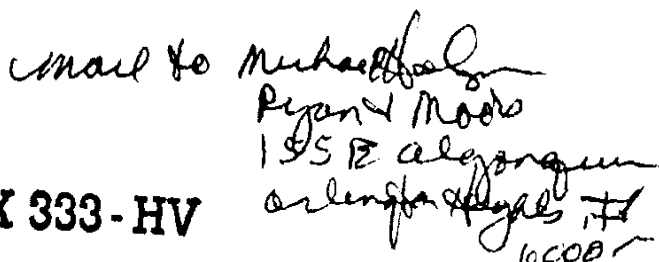 mail to Michael
Ryan & Moos
155 E Algonquin
Arlington Heights, Il
6000
X 333-HV